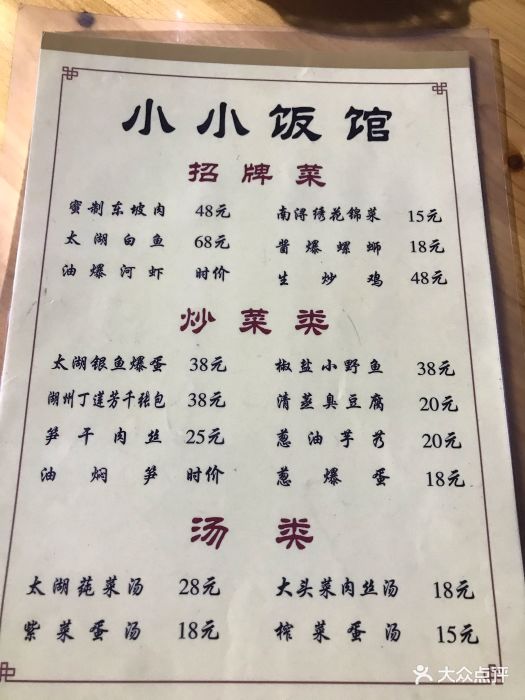 小小饭馆
招牌菜
蜜制东坡肉 48元 南浔绣花锦菜 15元
太湖白鱼 68元 酱爆螺蛳 18元
油爆河虾 时价 生炒鸡 48元
炒菜类
太湖银鱼爆蛋 38元 椒盐小野鱼 38元
湖州丁莲芳千张包 38元 清蒸臭豆腐 20元
笋干肉丝 25元 葱油芋艿 20元
油焖笋 时价 葱爆蛋 18元
汤类
太湖莼菜汤 28元 大头菜肉丝汤 18元
紫菜蛋汤 18元 榨菜蛋汤 15元
大众点评